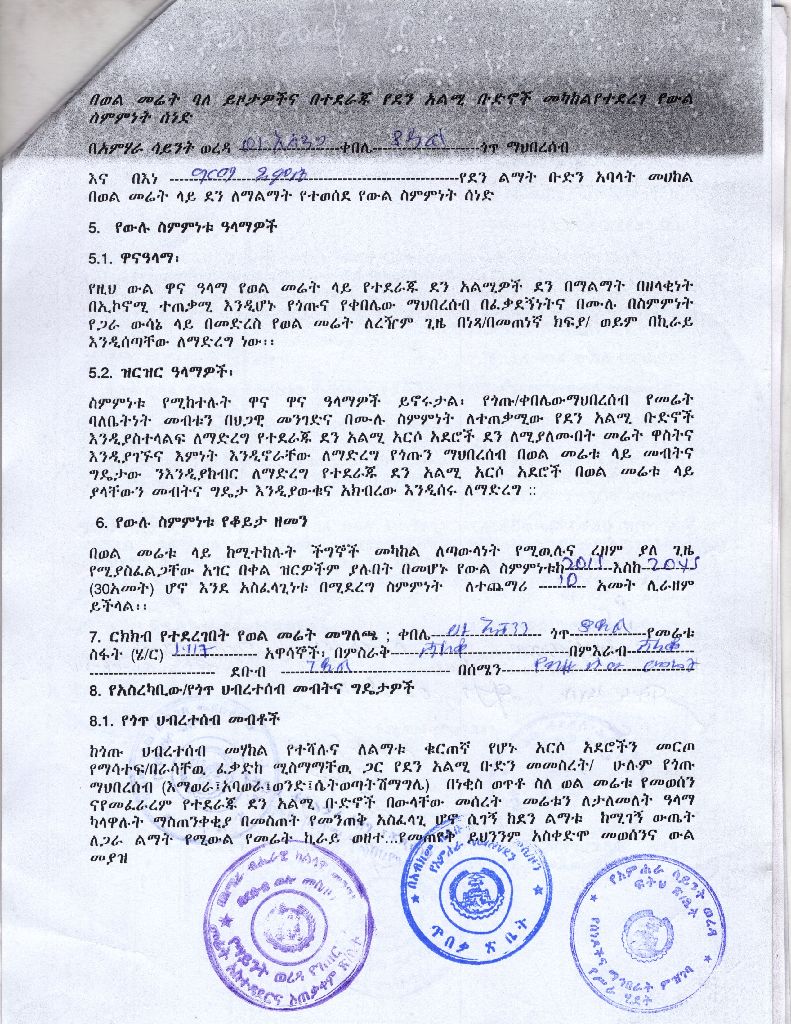 በወል መሬት ባለ ይዞታዎችና በተደራጁ የደን አልሚ ቡድኖች መካከልየተደረገ የውል
ስምምነት ሰነድ
በአምሃራ ሳይንት ወረዳ ቀበሌ ጎጥ ማህበረሰብ
እና በእነ የደን ልማት ቡድን አባላት መሀከል
በወል መሬት ላይ ደን ለማልማት የተወሰደ የውል ስምምነት ሰነድ
5. የውሉ ስምምነቱ ዓላማዎች
5.1. ዋናዓላማ፡
የዚህ ውል ዋና ዓላማ የወል መሬት ላይ የተደራጁ ደን አልሚዎች ደን በማልማት በዘላቂነት
በኢኮኖሚ ተጠቃሚ እንዲሆኑ የጎጡና የቀበሌው ማህበረሰብ በፈቃደኝነትና በሙሉ በስምምነት
የጋራ ውሳኔ ላይ በመድረስ የወል መሬት ለረዥም ጊዜ በነጻ/በመጠነኛ ክፍያ/ ወይም በኪራይ
እንዲሰጣቸው ለማድረግ ነው፡፡
5.2. ዝርዝር ዓላማዎች፡
ስምምነቱ የሚከተሉት ዋና ዋና ዓላማዎች ይኖሩታል፡ የጎጡ/ቀበሌውማህበረሰብ የመሬት
ባለቤትነት መብቱን በህጋዊ መንገድና በሙሉ ስምምነት ለተጠቃሚው የደን አልሚ ቡድኖች
እንዲያስተላልፍ ለማድረግ የተደራጁ ደን አልሚ አርሶ አደሮች ደን ለሚያለሙበት መሬት ዋስትና
እንዲያገኙና እምነት እንዲኖራቸው ለማድረግ የጎጡን ማህበረሰብ በወል መሬቱ ላይ መብትና
ግዴታው ንእንዲያከብር ለማድረግ የተደራጁ ደን አልሚ አርሶ አደሮች በወል መሬቱ ላይ
ያላቸውን መብትና ግዴታ እንዲያውቁና አክብረው እንዲሰሩ ለማድረግ ፡፡
6. የውሉ ስምምነቱ የቆይታ ዘመን
በወል መሬቱ ላይ ከሚተከሉት ችግኞች መካከል ለጣውላነት የሚዉሉና ረዘም ያለ ጊዜ
የሚያስፈልጋቸው አገር በቀል ዝርዎችም ያሉበት በመሆኑ የውል ስምምነቱከ 2015 እስከ 2045
(30አመት) ሆኖ እንደ አስፈላጊነቱ በሚደረግ ስምምነት ለተጨማሪ 10 አመት ሊራዘም
ይችላል፡፡
7. ርክክብ የተደረገበት የወል መሬት መግለጫ ; ቀበሌ ጎጥ የመሬቱ
ስፋት (ሄ/ር) አዋሳኞች፡ በምስራቅ በምእራብ
ደቡብ በሰሜን
8. የአስረካቢው/የጎጥ ህብረተሰብ መብትና ግዴታዎች
8.1. የጎጥ ህብረተሰብ መብቶች
ከጎጡ ህብረተሰብ መሃከል የተሻሉና ለልማቱ ቁርጠኛ የሆኑ አርሶ አደሮችን መርጦ
የማሳተፍ/በራሳቸዉ ፈቃድከ ሚስማማቸዉ ጋር የደን አልሚ ቡድን መመስረት/ ሁሉም የጎጡ
ማህበረሰብ (እማወራ፣አባወራ፣ወንድ፣ሴትወጣትሽማግሌ) በነቂስ ወጥቶ ስለ ወል መሬቱ የመወሰን
ናየመፈራረም የተደራጁ ደን አልሚ ቡድኖች በውላቸው መሰረት መሬቱን ለታለመለት ዓላማ
ካላዋሉት ማስጠንቀቂያ በመስጠት የመንጠቅ አስፈላጊ ሆኖ ሲገኝ ከደን ልማቱ ከሚገኝ ውጤት
ለጋራ ልማት የሚውል የመሬት ኪራይ ወዘተ...የመጠየቅ ይህንንም አስቀድሞ መወሰንና ውል
መያዝ
ጥበቃ ጽ ቤት
የአምሐራ ሳይንት ወረዳ
ፍትህ ጽ/ቤት